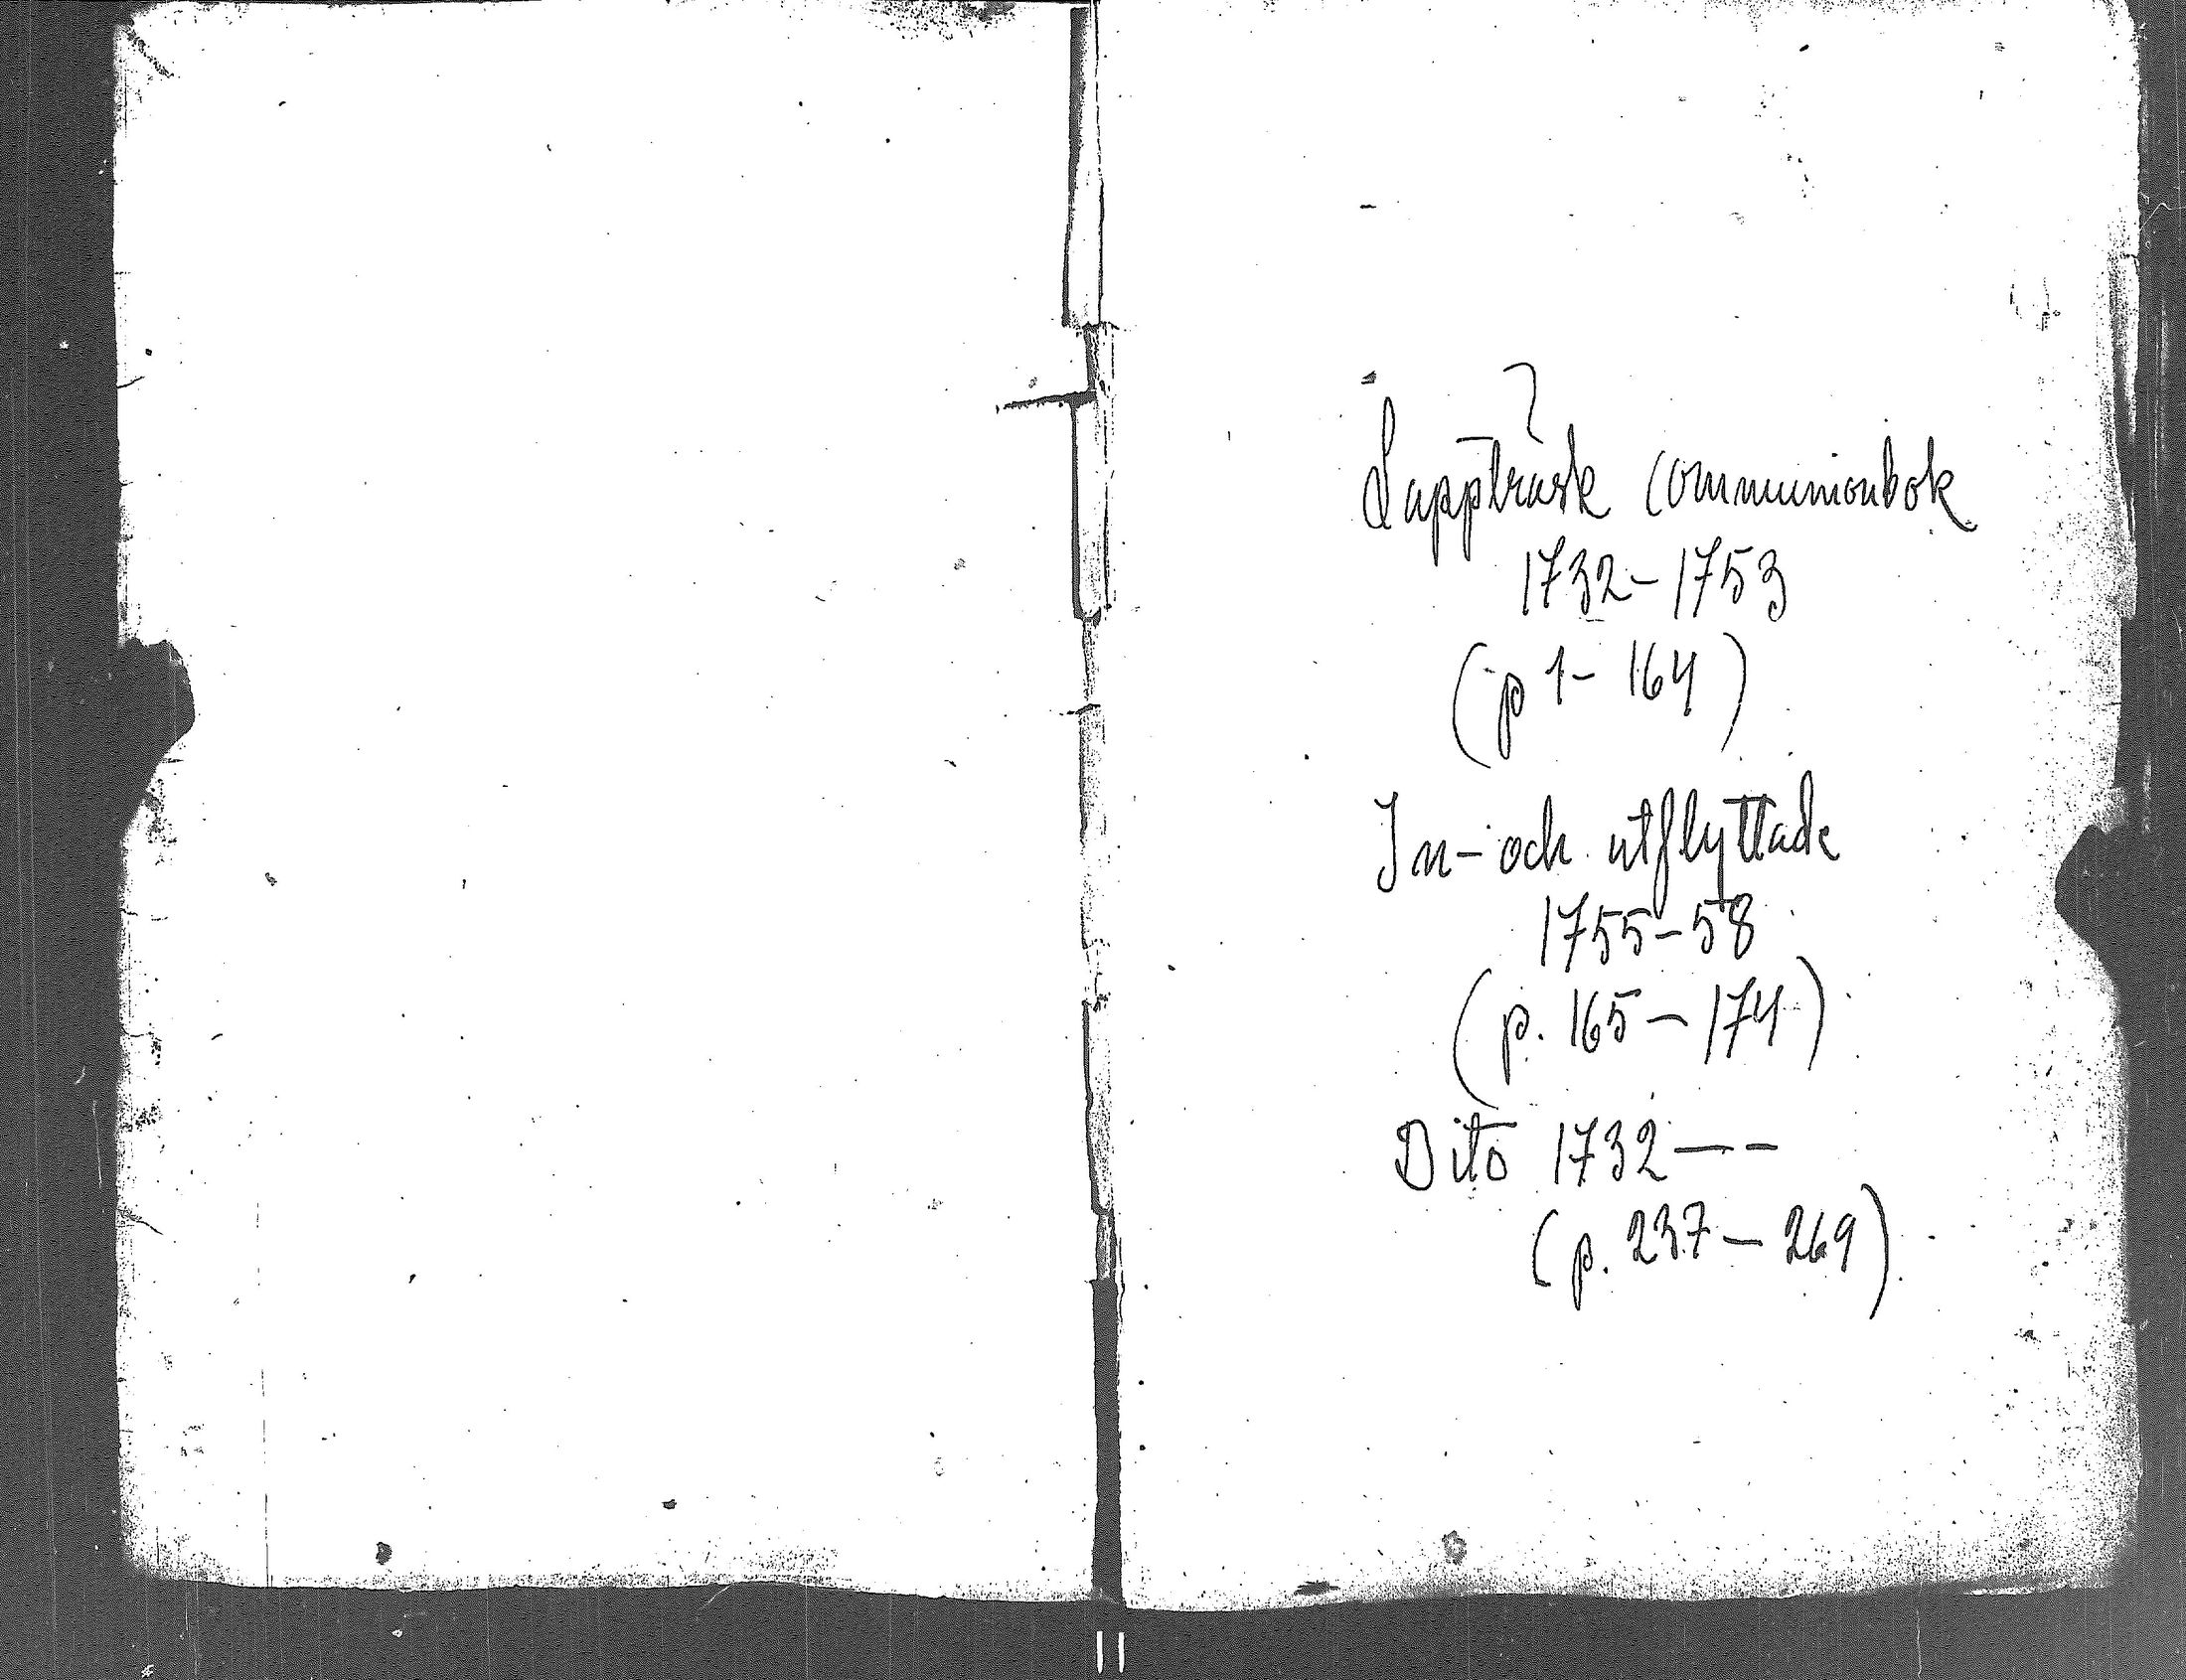 Lappträsk Communionbok
1732-1753
(p 1- 164)
In- och utflyttade
1755-58
(p. 165 - 174)
Dito 1732 - -
(p. 237 - 269)